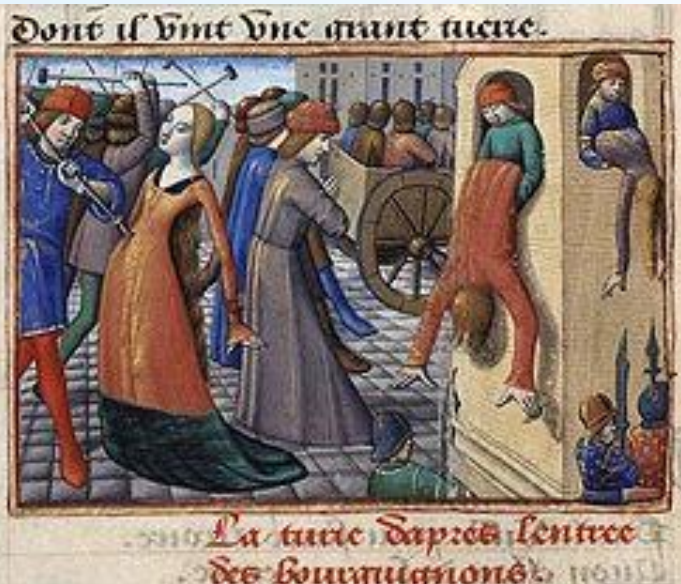 dont il vint vne grant tuerie.
La turie dapres lentree
des bourguignons.